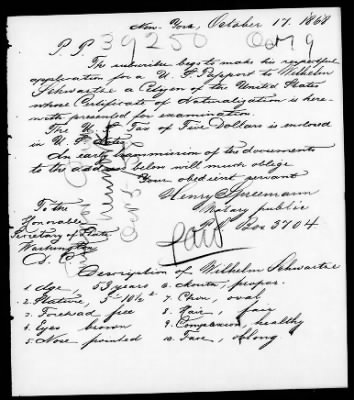 New York, October 17. 1868
P. P. 39250 Oct 19
The subscriber begs to make his respectful
application for a U. S. Passport to Wilhelm
Schwarthe a Citizen of the United States
whose Certificate of Naturalization is here-
with presented for examination.
The U. S. Tax of Five Dollars is enclosed
in U. S. Notes
An early transmission of the documents
to the address below will much oblige
Your obedient servant
Henry Spreemann
Notary public
P. O. Box 3704
To the
Honorable
Secretary of State
Washington
D. C.
Paid
Description of Wilhelm Schwarthe
1. Age, 53 years
2. Stature, 5-10 1/2
3. Forehead free
4. Eyes brown
5. Nose pointed
6. Mouth, proper.
7. Chin, oval
8. Hair, fair
9. Complexion, healthy
10. Face, oblong